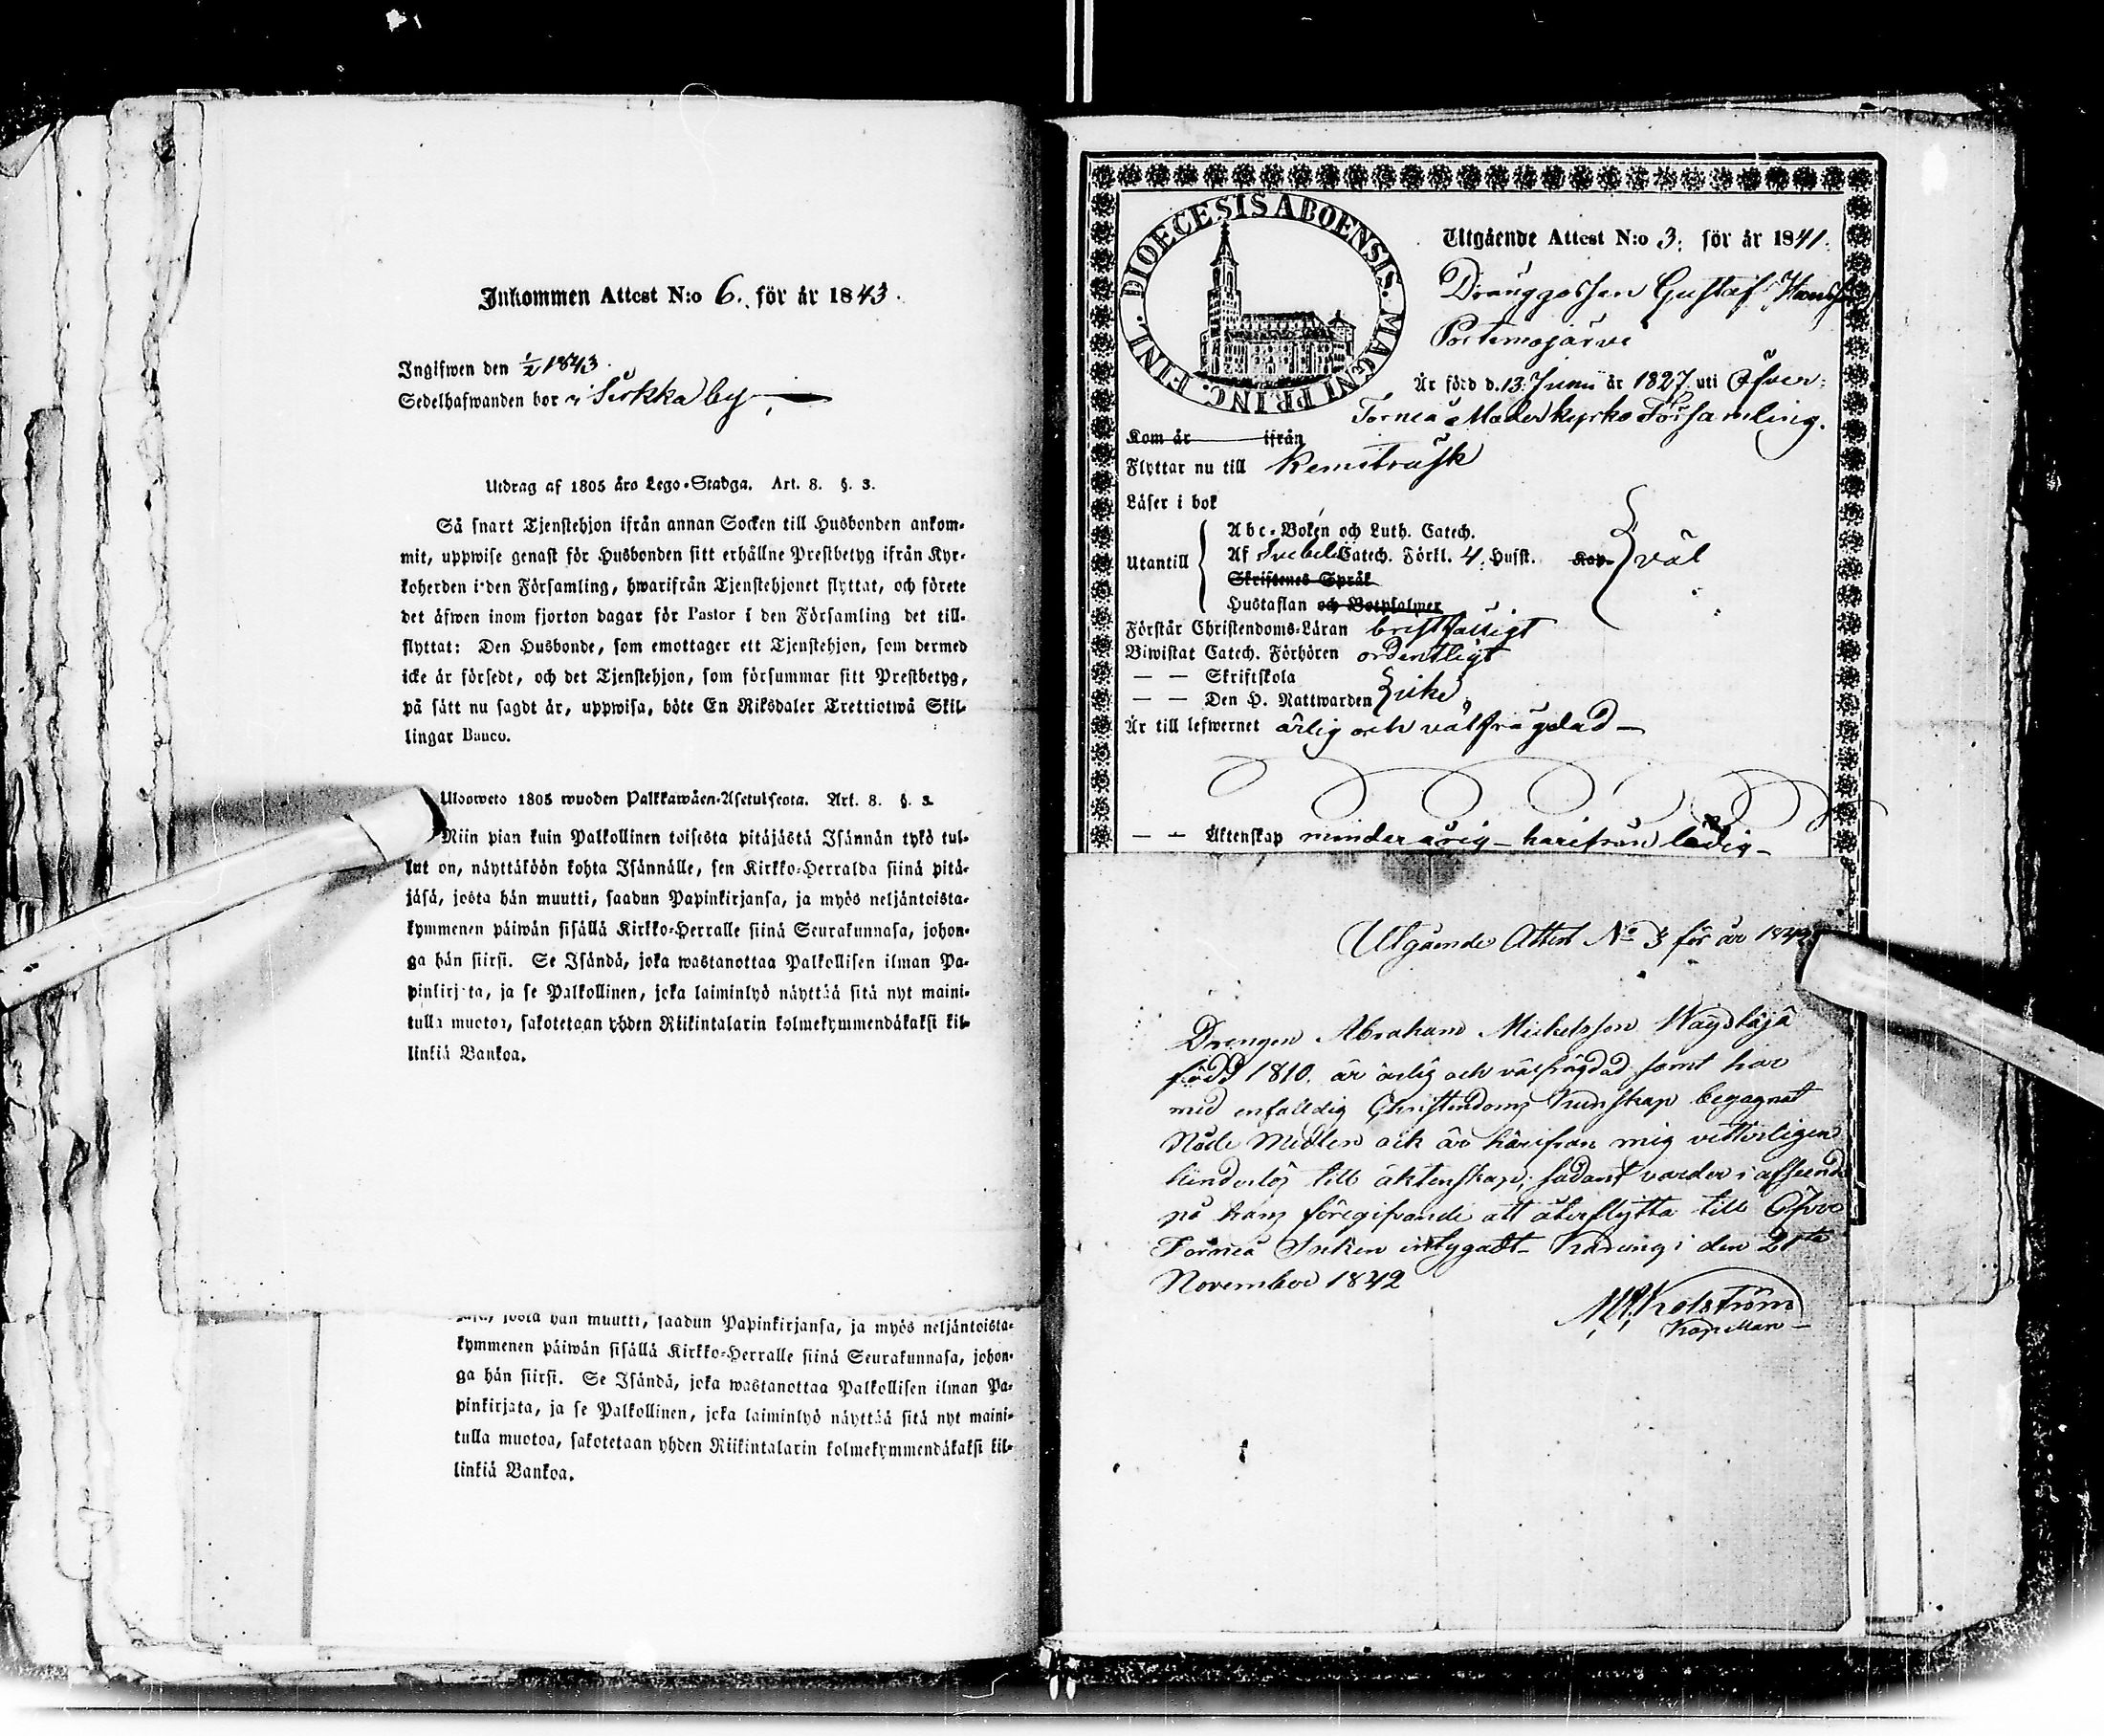 Inkommen Attest N:o 6. för år 1843.
Ingifwen den 1/2 1843.
Sedelhafwanden bor i Sirkka by
Utdrag af 1805 års Lego-Stadga. Art. 8. §. 3.
Så snart Tjenstehjon ifrån annan Socken till Husbonden ankom-
mit, uppwise genast för Husbonden sitt erhållne Prestbetyg ifrån Kyr-
koherden i den Församling, hwarifrån Tjenstehjonet flyttat, och förete
det äfwen inom fjorton dagar för Pastor i den Församling det till-
flyttat: Den Husbonde, som emottager ett Tjenstehjon, som dermed
icke är försedt, och det Tjenstehjon, som försummar sitt Prestbetyg,
på sätt nu sagdt är, uppwisa, böte En Riksdaler Trettiotwå Skil-
lingar Banco.
Ulosweto 1805 wuoden Palkkawäen-Asetuksesta. Art. 8. §. 3.
Niin pian kuin Palkollinen toisesta pitäjästä Isännän tykö tul-
lut on, näyttäköön kohta Isännälle, sen Kirkko-Herralda siinä pitä-
jäsä, josta hän muutti, saadun Papinkirjansa, ja myös neljäntoista-
kymmenen päiwän sisällä Kirkko-Herralle siinä Seurakunnasa, johon-
ga hän siirsi. Se Isändä, joka wastanottaa Palkollisen ilman Pa-
pinkirjata, ja se Palkollinen, joka laiminlyö näyttää sitä nyt maini-
tulla muotoa, sakotetaan yhden Riikintalarin kolmekymmendäkaksi kil-
linkiä Bankoa.
jäsä, josta hän muutti, saadun Papinkirjansa, ja myös neljäntoista-
kymmenen päiwän sisällä Kirkko-Herralle siinä Seurakunnasa, johon-
ga hän siirsi. Se Isändä, joka wastanottaa Palkollisen ilman Pa-
pinkirjata, ja se Palkollinen, joka laiminlyö näyttää sitä nyt maini-
tulla muotoa, sakotetaan yhden Riikintalarin kolmekymmendäkaksi kil-
linkiä Bankoa.
DIOECESIS ABOENSIS. MAGNI PRINC. FINL.
Utgående Attest N:o 3. för år 1841.
Dränggossen Gustaf Hansson
Portimojärvi
Är född d. 13 Junii år 1827 uti Öfver-
Torneå Moderkyrko Församling.
Kom år ifrån
Flyttar nu till Kemiträsk
Läser i bok
Abc-Boken och Luth. Catech.
Utantill Af Svebelii Catech. Förkl. 4. Hufst. Kap. väl
Skriftenes Språk
Hustaflan och Botpsalmer
Förstår Christendoms-Läran bristfälligt
Biwistat Catech. Förhören ordentligt
— — Skriftskola
— — Den H. Nattwarden icke
Är till lefwernet ärlig och välfrägdad —
— — Äktenskap minderårig - härifrån ledig -
Utgående Attest No 3 för år 1842
Drengen Abraham Mickelsson Waydkäjä
född 1810. är ärlig och välfrägdad samt har
med enfalldig Christendoms Kunskap begagnat
Nåde Medlen och är härifrån mig vetterligen
hinderlös till äktenskap; sådant varder i afseende
på hans föregifvande att återflytta till Öfver
Torneå Socken intygadt. Karungi den 21sta
November 1842
Kapellan —